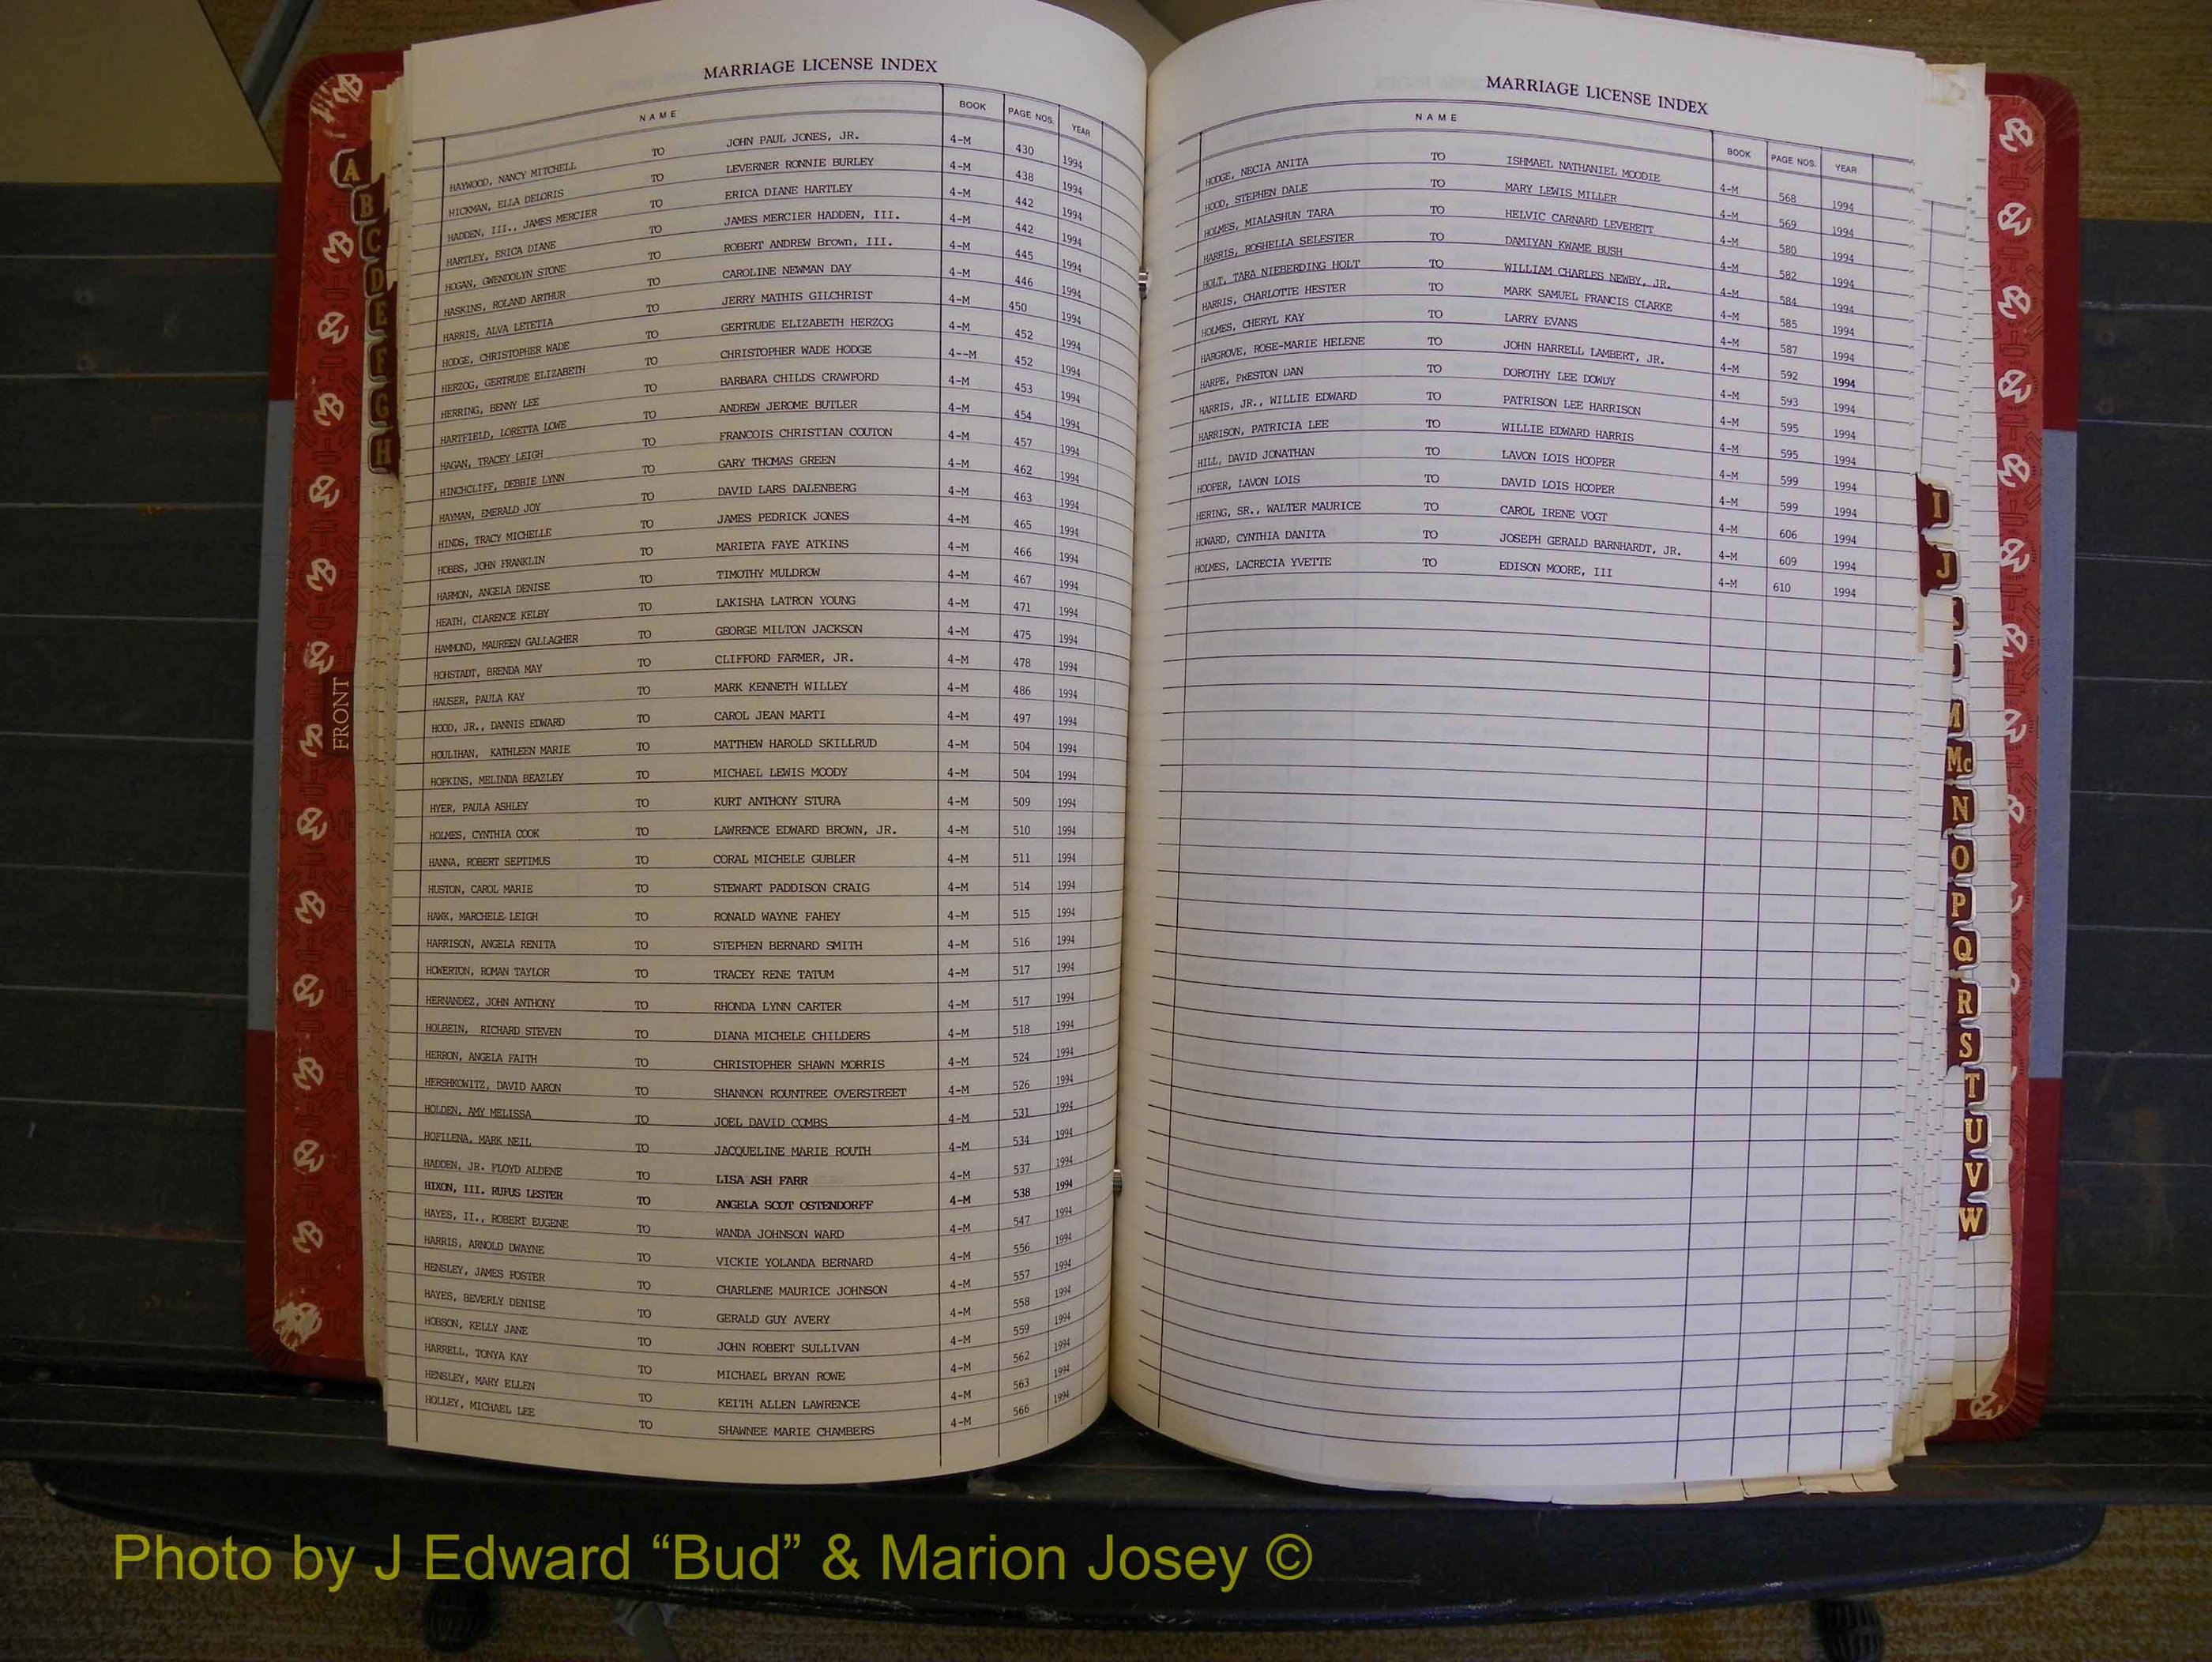 MARRIAGE LICENSE INDEX
NAME BOOK PAGE NOS. YEAR
HAYWOOD, NANCY MITCHELL TO JOHN PAUL JONES, JR. 4-M 430 1994
HICKMAN, ELLA DELORIS TO LEVERNER RONNIE BURLEY 4-M 438 1994
HADDEN, III., JAMES MERCIER TO ERICA DIANE HARTLEY 4-M 442 1994
HARTLEY, ERICA DIANE TO JAMES MERCIER HADDEN, III. 4-M 442 1994
HOGAN, GWENDOLYN STONE TO ROBERT ANDREW Brown, III. 4-M 445 1994
HASKINS, ROLAND ARTHUR TO CAROLINE NEWMAN DAY 4-M 446 1994
HARRIS, ALVA LETETIA TO JERRY MATHIS GILCHRIST 4-M 450 1994
HODGE, CHRISTOPHER WADE TO GERTRUDE ELIZABETH HERZOG 4-M 452 1994
HERZOG, GERTRUDE ELIZABETH TO CHRISTOPHER WADE HODGE 4--M 452 1994
HERRING, BENNY LEE TO BARBARA CHILDS CRAWFORD 4-M 453 1994
HARTFIELD, LORETTA LOWE TO ANDREW JEROME BUTLER 4-M 454 1994
HAGAN, TRACEY LEIGH TO FRANCOIS CHRISTIAN COUTON 4-M 457 1994
HINCHCLIFF, DEBBIE LYNN TO GARY THOMAS GREEN 4-M 462 1994
HAYMAN, EMERALD JOY TO DAVID LARS DALENBERG 4-M 463 1994
HINDS, TRACY MICHELLE TO JAMES PEDRICK JONES 4-M 465 1994
HOBBS, JOHN FRANKLIN TO MARIETA FAYE ATKINS 4-M 466 1994
HARMON, ANGELA DENISE TO TIMOTHY MULDROW 4-M 467 1994
HEATH, CLARENCE KELBY TO LAKISHA LATRON YOUNG 4-M 471 1994
HAMMOND, MAUREEN GALLAGHER TO GEORGE MILTON JACKSON 4-M 475 1994
HOHSTADT, BRENDA MAY TO CLIFFORD FARMER, JR. 4-M 478 1994
HAUSER, PAULA KAY TO MARK KENNETH WILLEY 4-M 486 1994
HOOD, JR., DANNIS EDWARD TO CAROL JEAN MARTI 4-M 497 1994
HOULIHAN, KATHLEEN MARIE TO MATTHEW HAROLD SKILLRUD 4-M 504 1994
HOPKINS, MELINDA BEAZLEY TO MICHAEL LEWIS MOODY 4-M 504 1994
HYER, PAULA ASHLEY TO KURT ANTHONY STURA 4-M 509 1994
HOLMES, CYNTHIA COOK TO LAWRENCE EDWARD BROWN, JR. 4-M 510 1994
HANNA, ROBERT SEPTIMUS TO CORAL MICHELE GUBLER 4-M 511 1994
HUSTON, CAROL MARIE TO STEWART PADDISON CRAIG 4-M 514 1994
HAWK, MARCHELE LEIGH TO RONALD WAYNE FAHEY 4-M 515 1994
HARRISON, ANGELA RENITA TO STEPHEN BERNARD SMITH 4-M 516 1994
HOWERTON, ROMAN TAYLOR TO TRACEY RENE TATUM 4-M 517 1994
HERNANDEZ, JOHN ANTHONY TO RHONDA LYNN CARTER 4-M 517 1994
HOLBEIN, RICHARD STEVEN TO DIANA MICHELE CHILDERS 4-M 518 1994
HERRON, ANGELA FAITH TO CHRISTOPHER SHAWN MORRIS 4-M 524 1994
HERSHKOWITZ, DAVID AARON TO SHANNON ROUNTREE OVERSTREET 4-M 526 1994
HOLDEN, AMY MELISSA TO JOEL DAVID COMBS 4-M 531 1994
HOFILENA, MARK NEIL TO JACQUELINE MARIE ROUTH 4-M 534 1994
HADDEN, JR. FLOYD ALDENE TO LISA ASH FARR 4-M 537 1994
HIXON, III. RUFUS LESTER TO ANGELA SCOT OSTENDORFF 4-M 538 1994
HAYES, II., ROBERT EUGENE TO WANDA JOHNSON WARD 4-M 547 1994
HARRIS, ARNOLD DWAYNE TO VICKIE YOLANDA BERNARD 4-M 556 1994
HENSLEY, JAMES FOSTER TO CHARLENE MAURICE JOHNSON 4-M 557 1994
HAYES, BEVERLY DENISE TO GERALD GUY AVERY 4-M 558 1994
HOBSON, KELLY JANE TO JOHN ROBERT SULLIVAN 4-M 559 1994
HARRELL, TONYA KAY TO MICHAEL BRYAN ROWE 4-M 562 1994
HENSLEY, MARY ELLEN TO KEITH ALLEN LAWRENCE 4-M 563 1994
HOLLEY, MICHAEL LEE TO SHAWNEE MARIE CHAMBERS 4-M 566 1994
MARRIAGE LICENSE INDEX
NAME BOOK PAGE NOS. YEAR
HODGE, NECIA ANITA TO ISHMAEL NATHANIEL MOODIE 4-M 568 1994
HOOD, STEPHEN DALE TO MARY LEWIS MILLER 4-M 569 1994
HOLMES, MIALASHUN TARA TO HELVIC CARNARD LEVERETT 4-M 580 1994
HARRIS, ROSHELLA SELESTER TO DAMIYAN KWAME BUSH 4-M 582 1994
HOLT, TARA NIEBERDING HOLT TO WILLIAM CHARLES NEWBY, JR. 4-M 584 1994
HARRIS, CHARLOTTE HESTER TO MARK SAMUEL FRANCIS CLARKE 4-M 585 1994
HOLMES, CHERYL KAY TO LARRY EVANS 4-M 587 1994
HARGROVE, ROSE-MARIE HELENE TO JOHN HARRELL LAMBERT, JR. 4-M 592 1994
HARPE, PRESTON DAN TO DOROTHY LEE DOWDY 4-M 593 1994
HARRIS, JR., WILLIE EDWARD TO PATRISON LEE HARRISON 4-M 595 1994
HARRISON, PATRICIA LEE TO WILLIE EDWARD HARRIS 4-M 595 1994
HILL, DAVID JONATHAN TO LAVON LOIS HOOPER 4-M 599 1994
HOOPER, LAVON LOIS TO DAVID LOIS HOOPER 4-M 599 1994
HERING, SR., WALTER MAURICE TO CAROL IRENE VOGT 4-M 606 1994
HOWARD, CYNTHIA DANITA TO JOSEPH GERALD BARNHARDT, JR. 4-M 609 1994
HOLMES, LACRECIA YVETTE TO EDISON MOORE, III 4-M 610 1994
A
B
C
D
E
F
G
H
FRONT
I
J
M
Mc
N
O
P
Q
R
S
T
U
V
W
Photo by J Edward “Bud” & Marion Josey ©